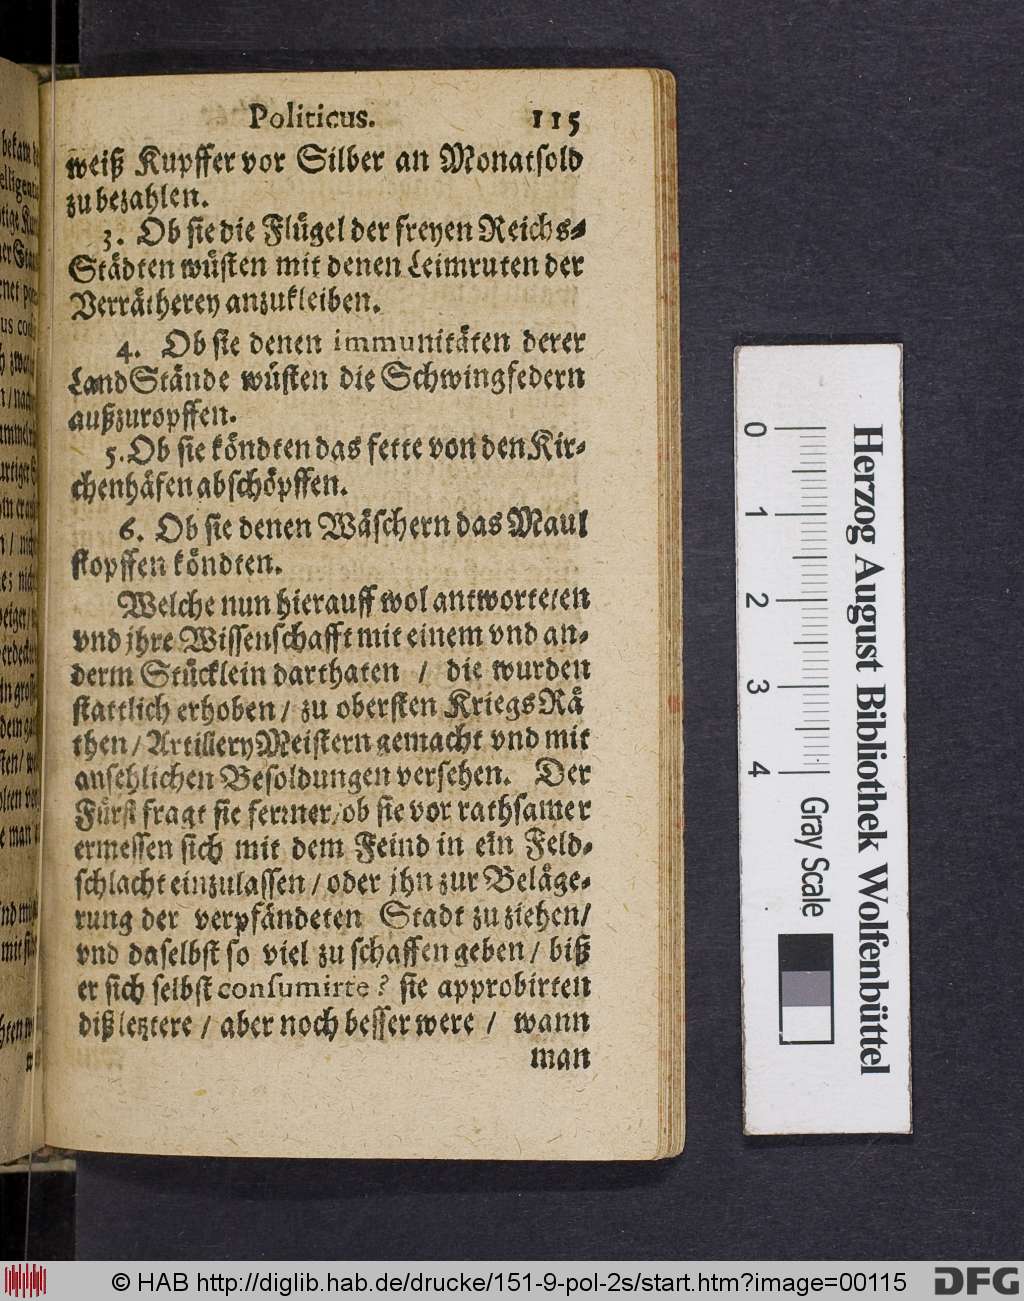 Politicus. 115
weiß Kupffer vor Silber an Monatsold
zu bezahlen.
3. Ob sie die Flügel der freyen Reichs-
Städten wüsten mit denen Leimruten der
Verrätherey anzukleiben.
4. Ob sie denen immunitäten derer
LandStände wüsten die Schwingfedern
außzuropffen.
5. Ob sie köndten das fette von den Kir-
chenhäfen abschöpffen.
6. Ob sie denen Wäschern das Maul
stopffen köndten.
Welche nun hierauff wol antworteten
vnd jhre Wissenschafft mit einem vnd an-
derm Stücklein darthaten / die wurden
stattlich erhoben / zu obersten KriegsRä
then / ArtilleryMeistern gemacht vnd mit
ansehlichen Besoldungen versehen. Der
Fürst fragt sie ferner / ob sie vor rathsamer
ermessen sich mit dem Feind in ein Feld-
schlacht einzulassen / oder jhn zur Beläge-
rung der verpfändeten Stadt zu ziehen /
vnd daselbst so viel zu schaffen geben / biß
er sich selbst consumirte? sie approbirten
diß letztere / aber noch besser were / wann
man
0
1
2
3
4
Gray Scale
Herzog August Bibliothek Wolfenbüttel
© HAB http://diglib.hab.de/drucke/151-9-pol-2s/start.htm?image=00115
DFG